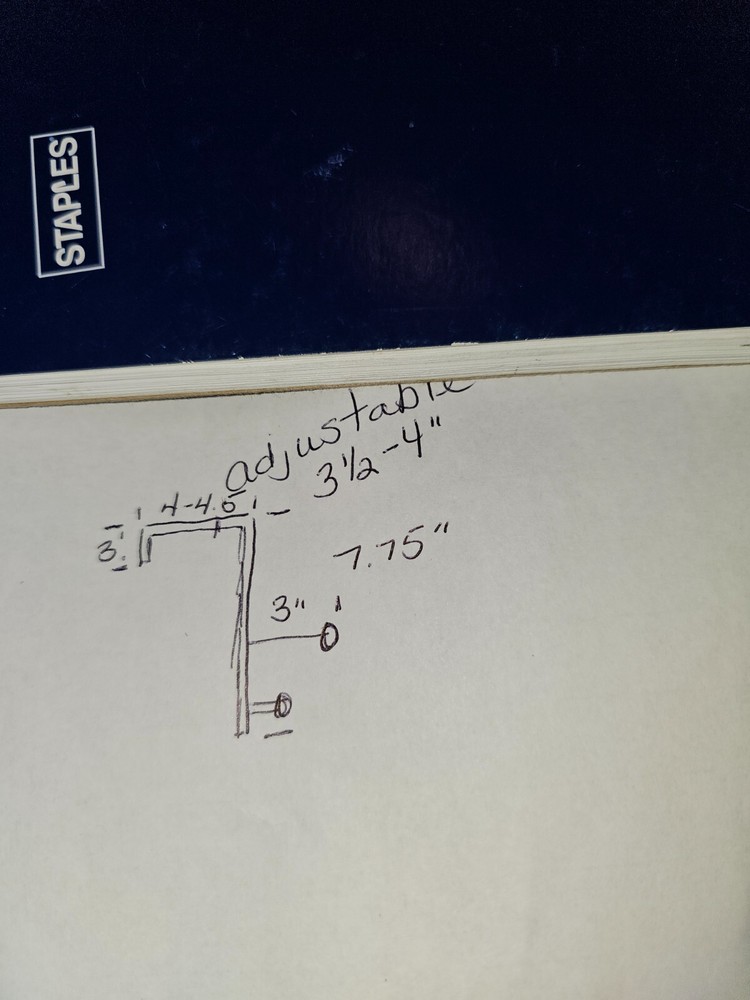 STAPLES
adjustable
3½-4"
4-4.5
3
7.75"
3"